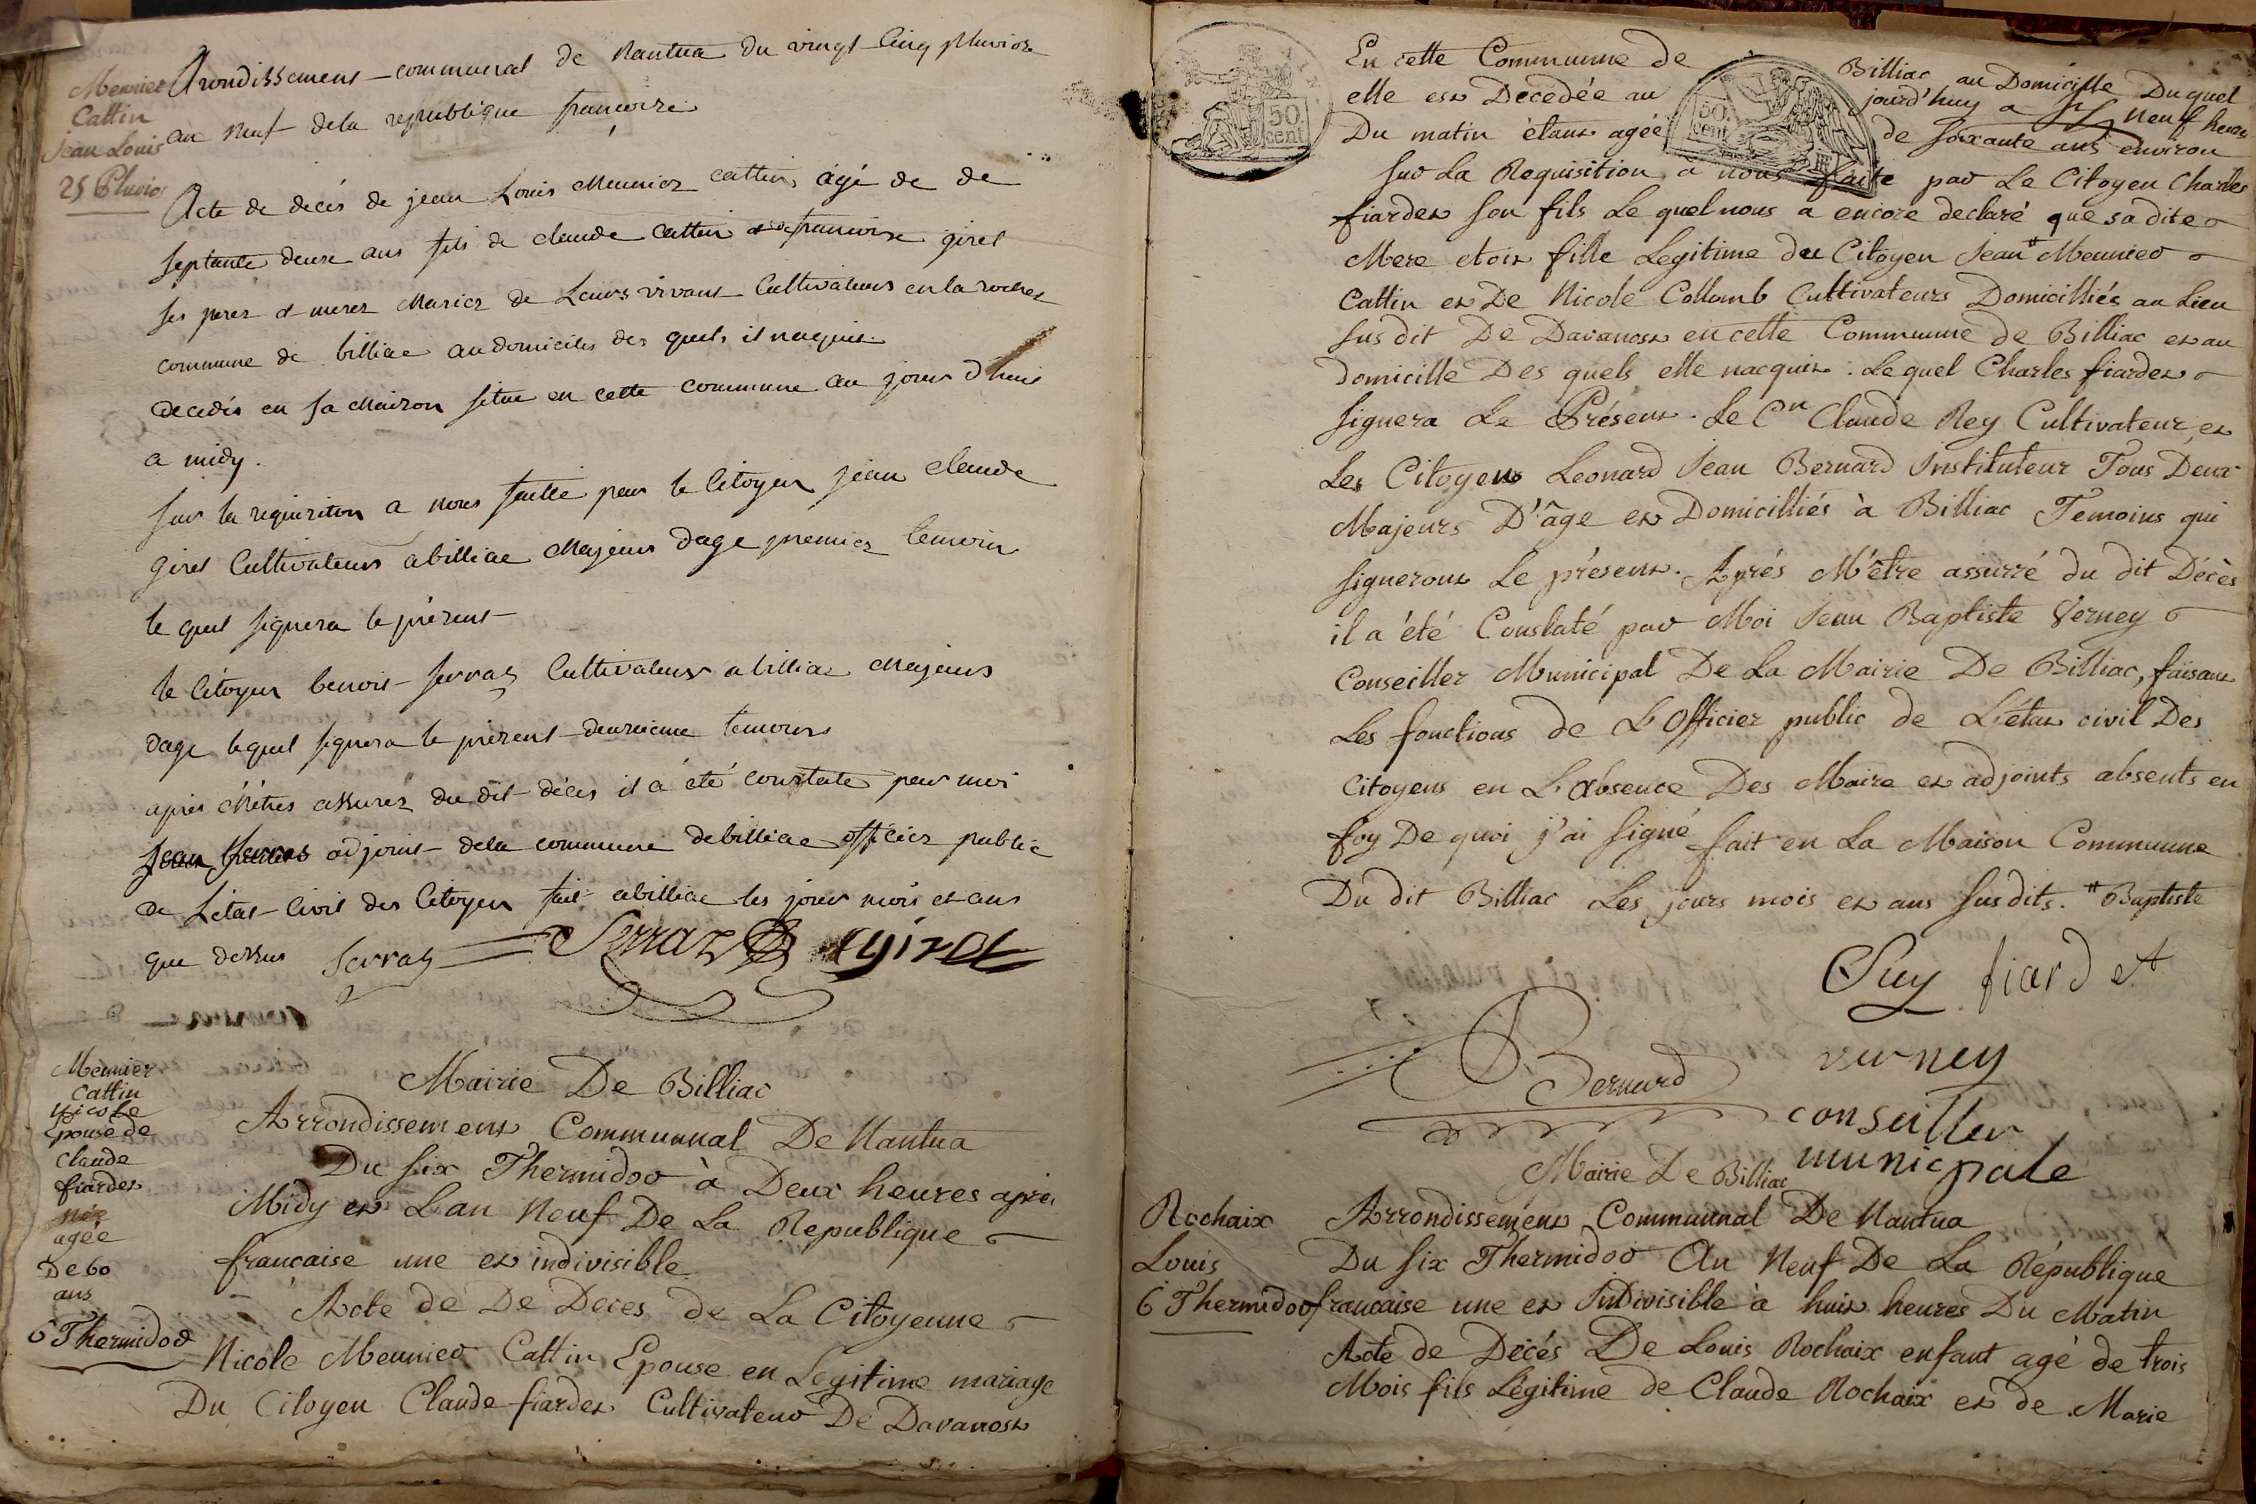 Meunier
Cattin
Jean Louis
25 Pluvios
Arondissement communal de Nantua du vingt cinq pluviose
an neuf dela republique francoise
Acte de décés de jean Louis Meunier cattin agé de de
septante deux ans fils de claude Cattin et de francoise giret
ses perez et merez Mariez de Leurs vivant Cultivateurs en la roche
commune de billiac au domiciles des quels il naquit.
decedés en sa Maison situe en cette commune au jour d'huis
a midy.
sur la requisition a nous faitte par le Citoyen jean claude
giret Cultivateur a billiac Majeur dage premier temoin
le quel signera le présent
le Citoyen benoit serraz Cultivateur a billiac Majeur
dage lequel signera le present deuxieme temoins
après M'êtres assurez du dit décés il a été constate par moi
Jean Serras adjoint dela commune debilliac officier public
de Létat Civil des Citoyen fait abilliac les jour mois et ans
que dessus serraz Serraz Cgiret
Meunier
Cattin
Nicole
Epouse de
Claude
fiardet
née
agée
De 60
ans
6 Thermidor
Mairie De Billiac
Arrondissement Communal De Nantua
Du six Thermidor à Deux heures après
Midy et L'an Neuf De La Republique
française une et indivisible
Acte de De Deces de La Citoyenne
Nicole Meunier Cattin Epouse en Legitime mariage
Du Citoyen Claude fiardet Cultivateur De Davanost
En cette Commune de Billiac au Domicille Duquel
elle est Decedée au jourd'huy a neuf heure
Du matin étant agée de soixante ans environ
sur La Requisition a nous faite par Le Citoyen Charles
fiardet son fils Le quel nous a encore declaré que sa dite
Mere etoit fille Legitime du Citoyen Jean # Meunier
Cattin et De Nicole Collomb Cultivateurs Domicilliés au Lieu
sus dit De Davanost en cette Commune de Billiac et au
domicille Des quels elle nacquit : Le quel Charles fiardet
signera Le Présent. Le Cen Claude Rey Cultivateur et
Les Citoyens Leonard Jean Bernard Instituteur Tous Deux
Majeurs D'âge et Domicilliés à Billiac Temoins qui
signeront Le présent. Après M'être assurré du dit Décès
il a été Constaté par Moi Jean Baptiste Verney
Conseiller Municipal De La Mairie De Billiac, faisant
Les fonctions de L'Officier public de L'état civil Des
Citoyens en L'absence Des Maire et adjoints absents en
foy De quoi j'ai signé fait en La Maison Commune
Du dit Billiac Les jours mois et ans susdits. # Baptiste
fiardet
Bernard
verney
conseiller
municpale
Mairie De Billiac
Rochaix
Louis
6 Thermidor
Arrondissement Communal De Nantua
Du six Thermidor An Neuf De La République
française une et Indivisible à huit heures Du Matin
Acte de Décés De Louis Rochaix enfant agé de trois
Mois fils Légitime de Claude Rochaix et de Marie
50
cent
50
cent